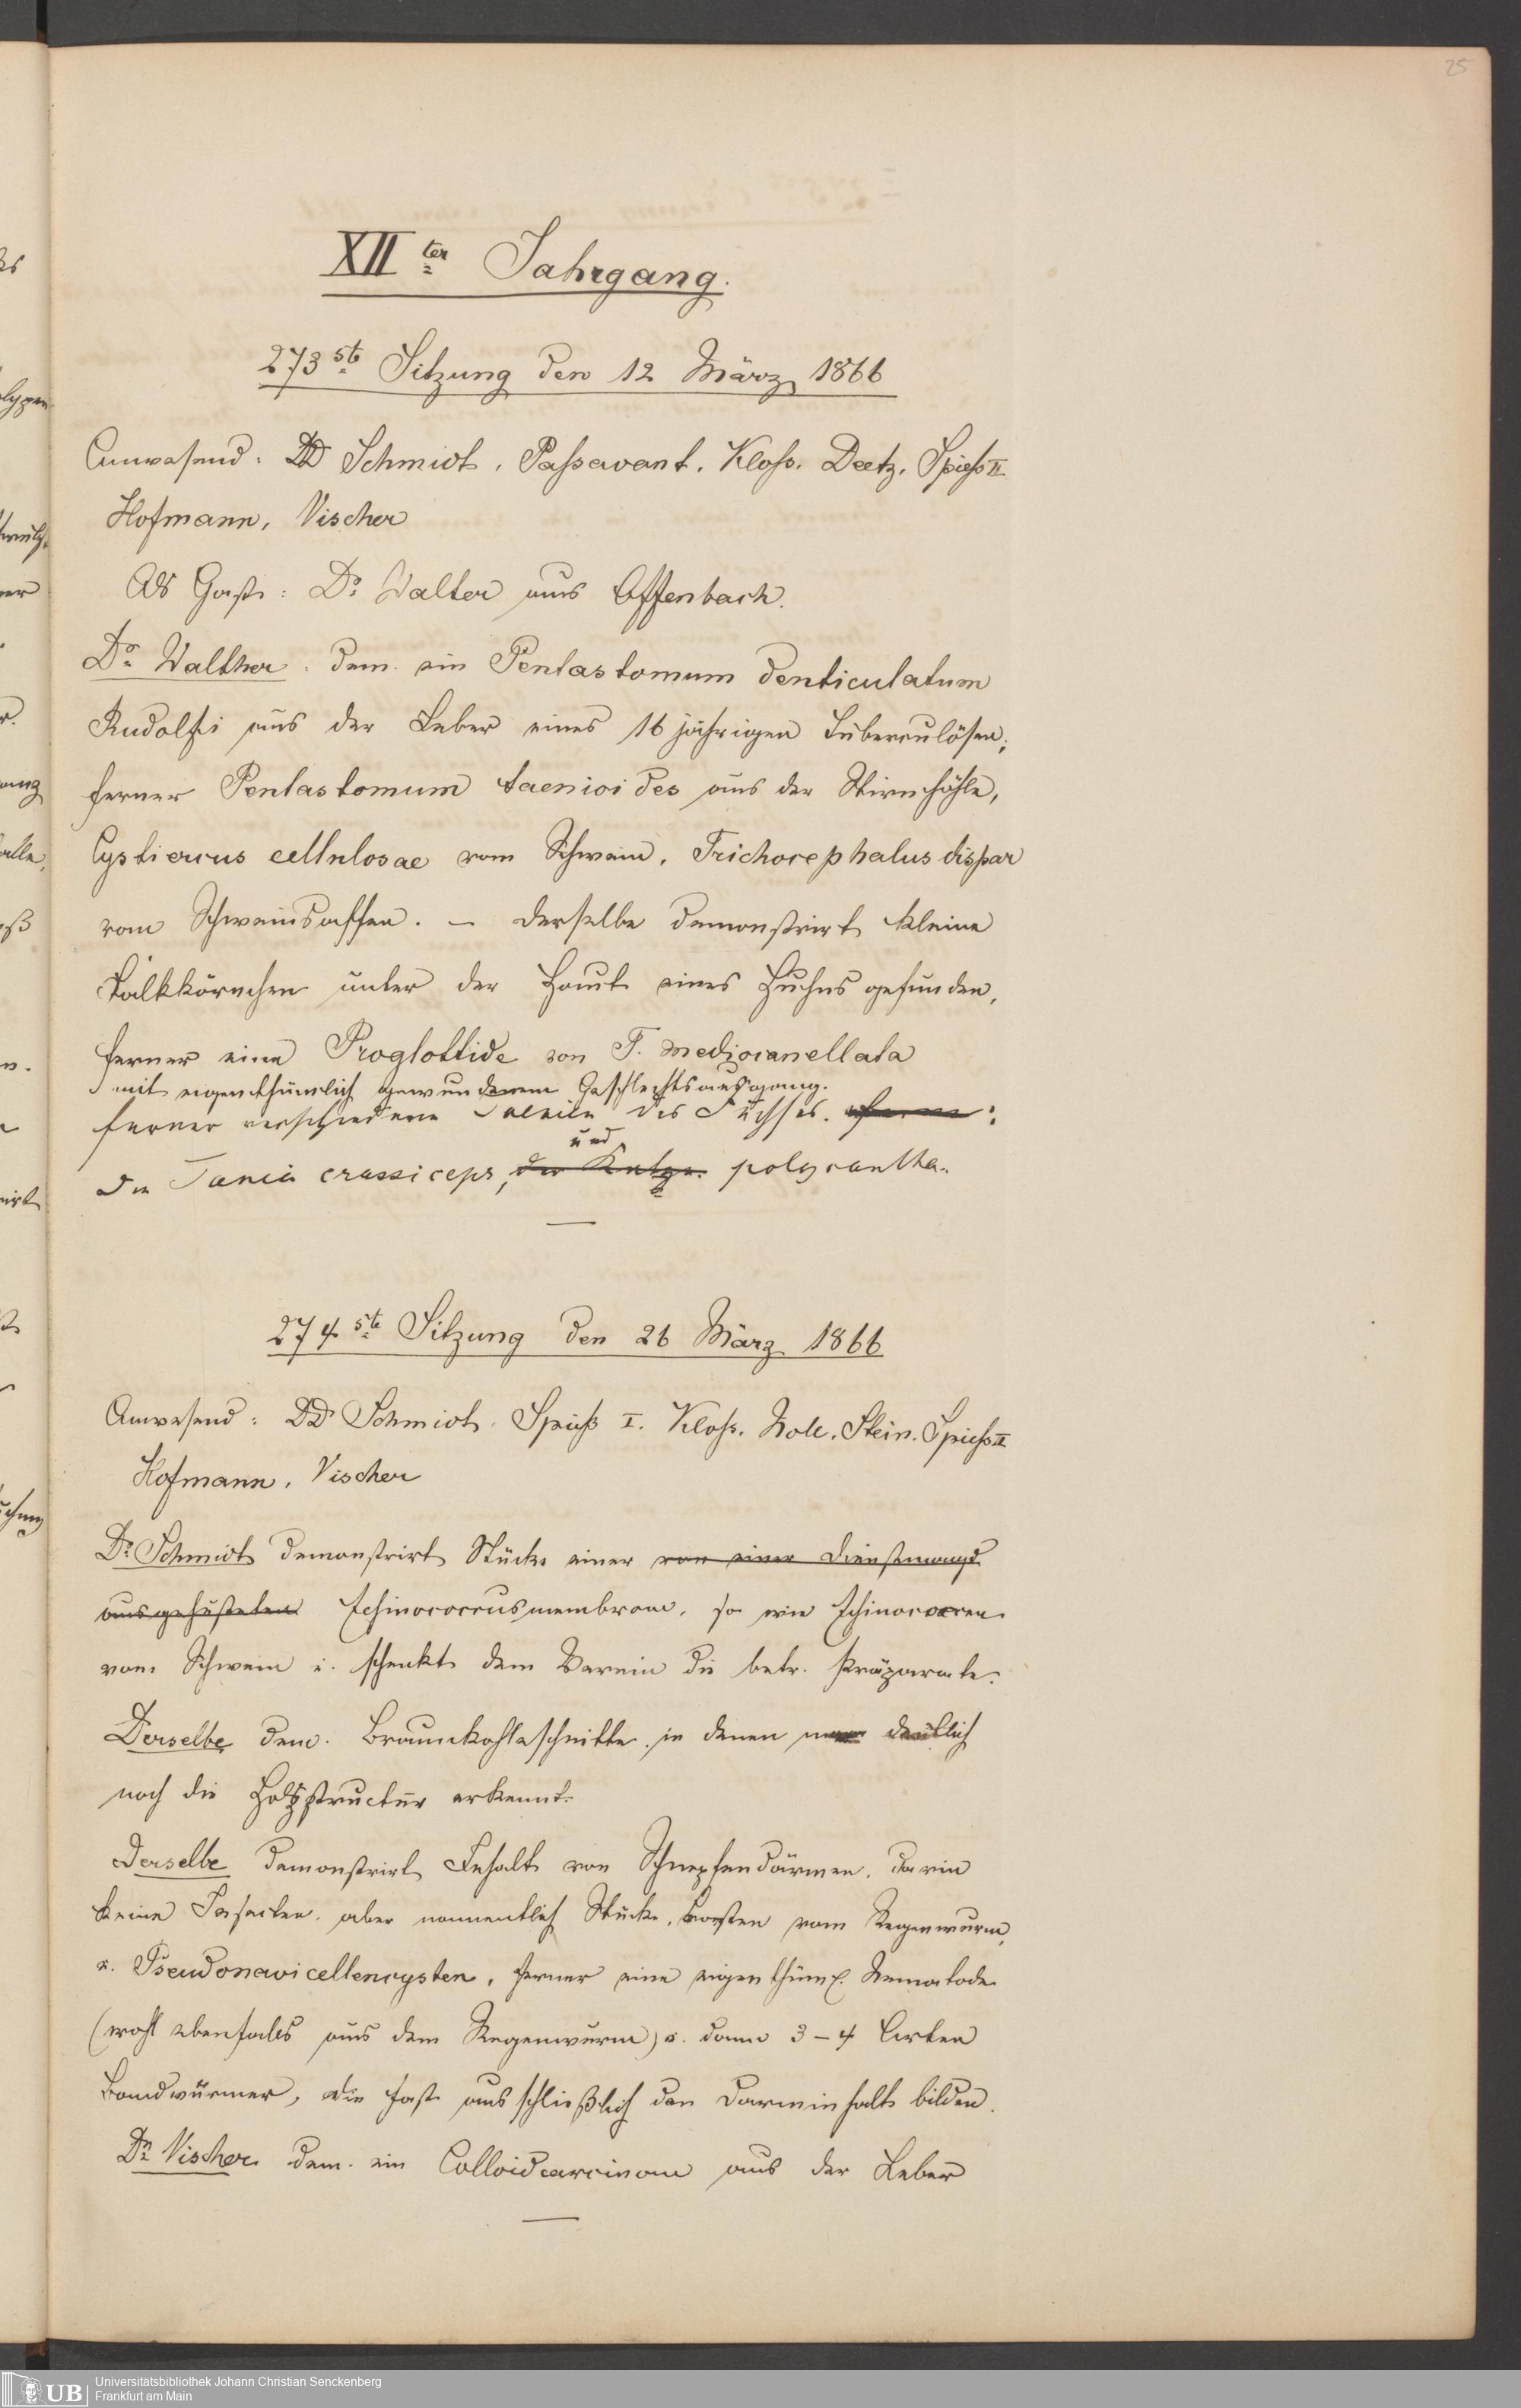 25
XII ter Jahrgang.
273 ste Sitzung den 12 März 1866
Anwesend: DD Schmidt, Passavant, Kloss, Deetz, Spiess II
Hofmann, Vischer
Als Gast: Dr Walter aus Offenbach.
Dr Walther. dem. ein Pentastomum denticulatum
Rudolfi aus der Leber eines 16 jährigen Tuberculösen;
ferner Pentastomum taenioides aus der Stirnhöhle,
Cysticercus cellulosae vom Schwein, Trichocephalus dispar
vom Schweinsaffen. – Derselbe demonstrirt kleine
Kalkkörnchen unter der Haut eines Huhns gefunden,
ferner eine Proglottide von T. mediocanellata
mit eigenthümlich gewundenem Geschlechtsausgang.
ferner verschiedene Taenien des Fuchses. ferner:
die Tania crassiceps, der Katze. und polycantha.
274 ste Sitzung den 26 März 1866
Anwesend: DD Schmidt, Spieß I. Kloss, Noll, Stein. Spiess II
Hofmann, Vischer
Dr Schmidt demonstrirt Stücke einer von einer Dienstmagd
ausgehusteten Echinococcusmembran, so wie Echinococcen
vom Schwein u. schenkt dem Verein die betr. Präparate.
Derselbe dem. Braunkohleschnitte, in denen man deutlich
noch die Holzstructur erkennt.
Derselbe demonstrirt Inhalt von Schnepfendärmen, darin
keine Insecten, aber namentlich Stücke, Borsten vom Regenwurm,
u. Pseudonavicellencysten, ferner eine eigenthüml. Nematode
(wohl ebenfalls aus dem Regenwurm) u. dann 3–4 Arten
Bandwürmer, die fast ausschließlich den Darminhalt bilden.
Dr Vischer dem. ein Colloidcarcinom aus der Leber
UB Universitätsbibliothek Johann Christian Senckenberg
Frankfurt am Main